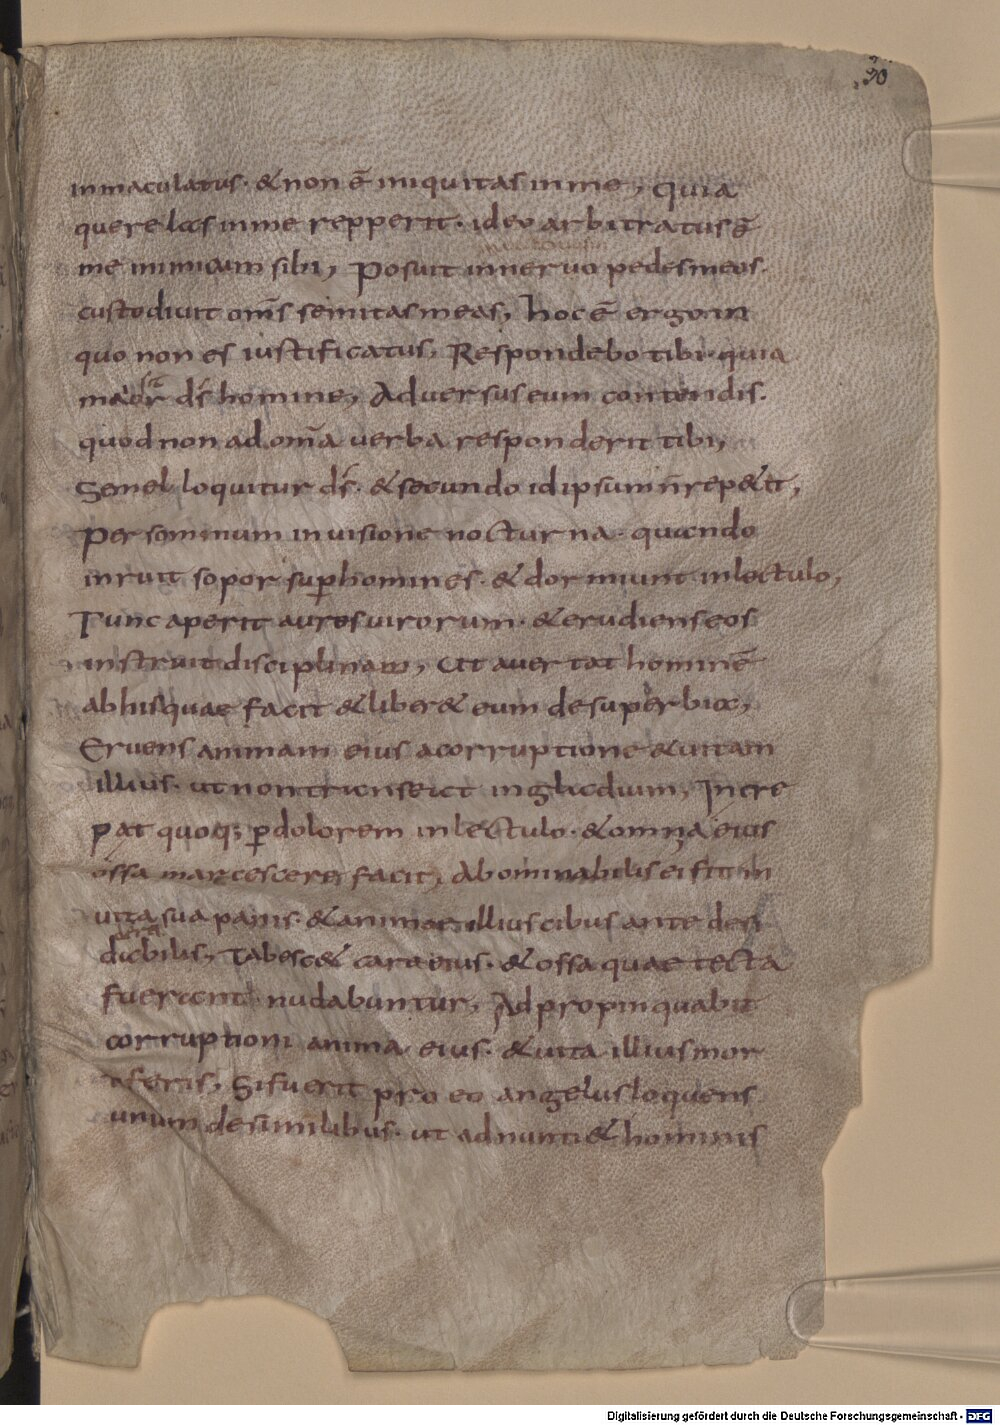 90
inmaculatus. & non ē iniquitas in me, Quia
querelas in me repperit. ideo arbitratus ē
me inimicum sibi, Posuit in neruo pedes meos.
custodiuit om̄s semitas meas, hoc ē ergo in
quo non es iustificatus, Respondebo tibi. quia
maior dſ homine, Aduersus eum contendis.
quod non ad om̄a uerba responderit tibi,
Semel loquitur dſ. & secundo id ipsum n̄ rep&it,
Per somnium in uisione nocturna. quando
inruit sopor suꝑ homines. & dormiunt in lectulo,
Tunc aperit aures uirorum. & erudiens eos
instruit disciplinam, Ut auertat hominē
ab his quae facit & liber& eum de superbia,
Eruens animam eius a corruptione & uitam
illius. ut non transeat in gladium, Incre
pat quoq; ꝑ dolorem in lectulo. & omnia eius
ossa marcescere facit, Abominabilis ei fit in
uita sua panis. & animae illius cibus ante desi
derabilis, Tabesc& caro eius. & ossa quae tecta
fuerant nudabuntur, Adpropinquabit
corruptioni anima eius. & uita illius mor
tiferis, Si fuerit pro eo angelus loquens
unum de similibus. ut adnunti& hominis
Digitalisierung gefördert durch die Deutsche Forschungsgemeinschaft - DFG